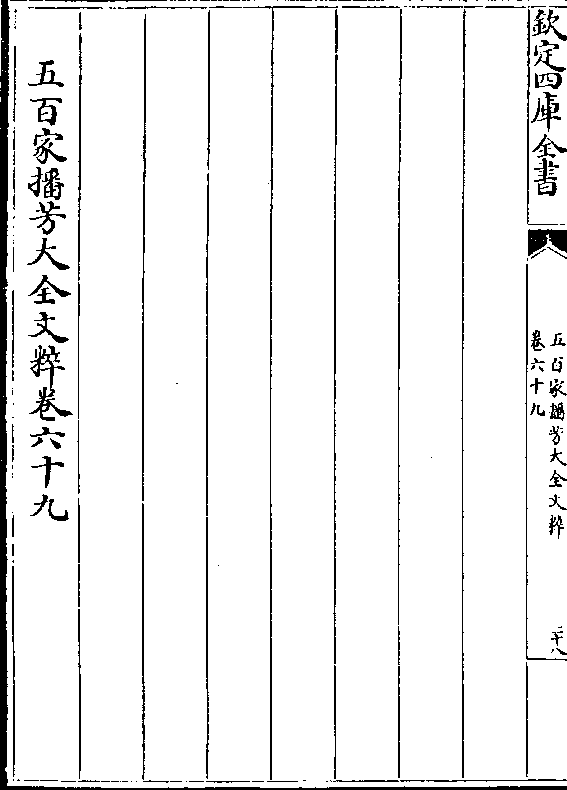 欽定四庫全書
五百家播芳大全文粹
卷六十九
二十八
五百家播芳大全文粹卷六十九